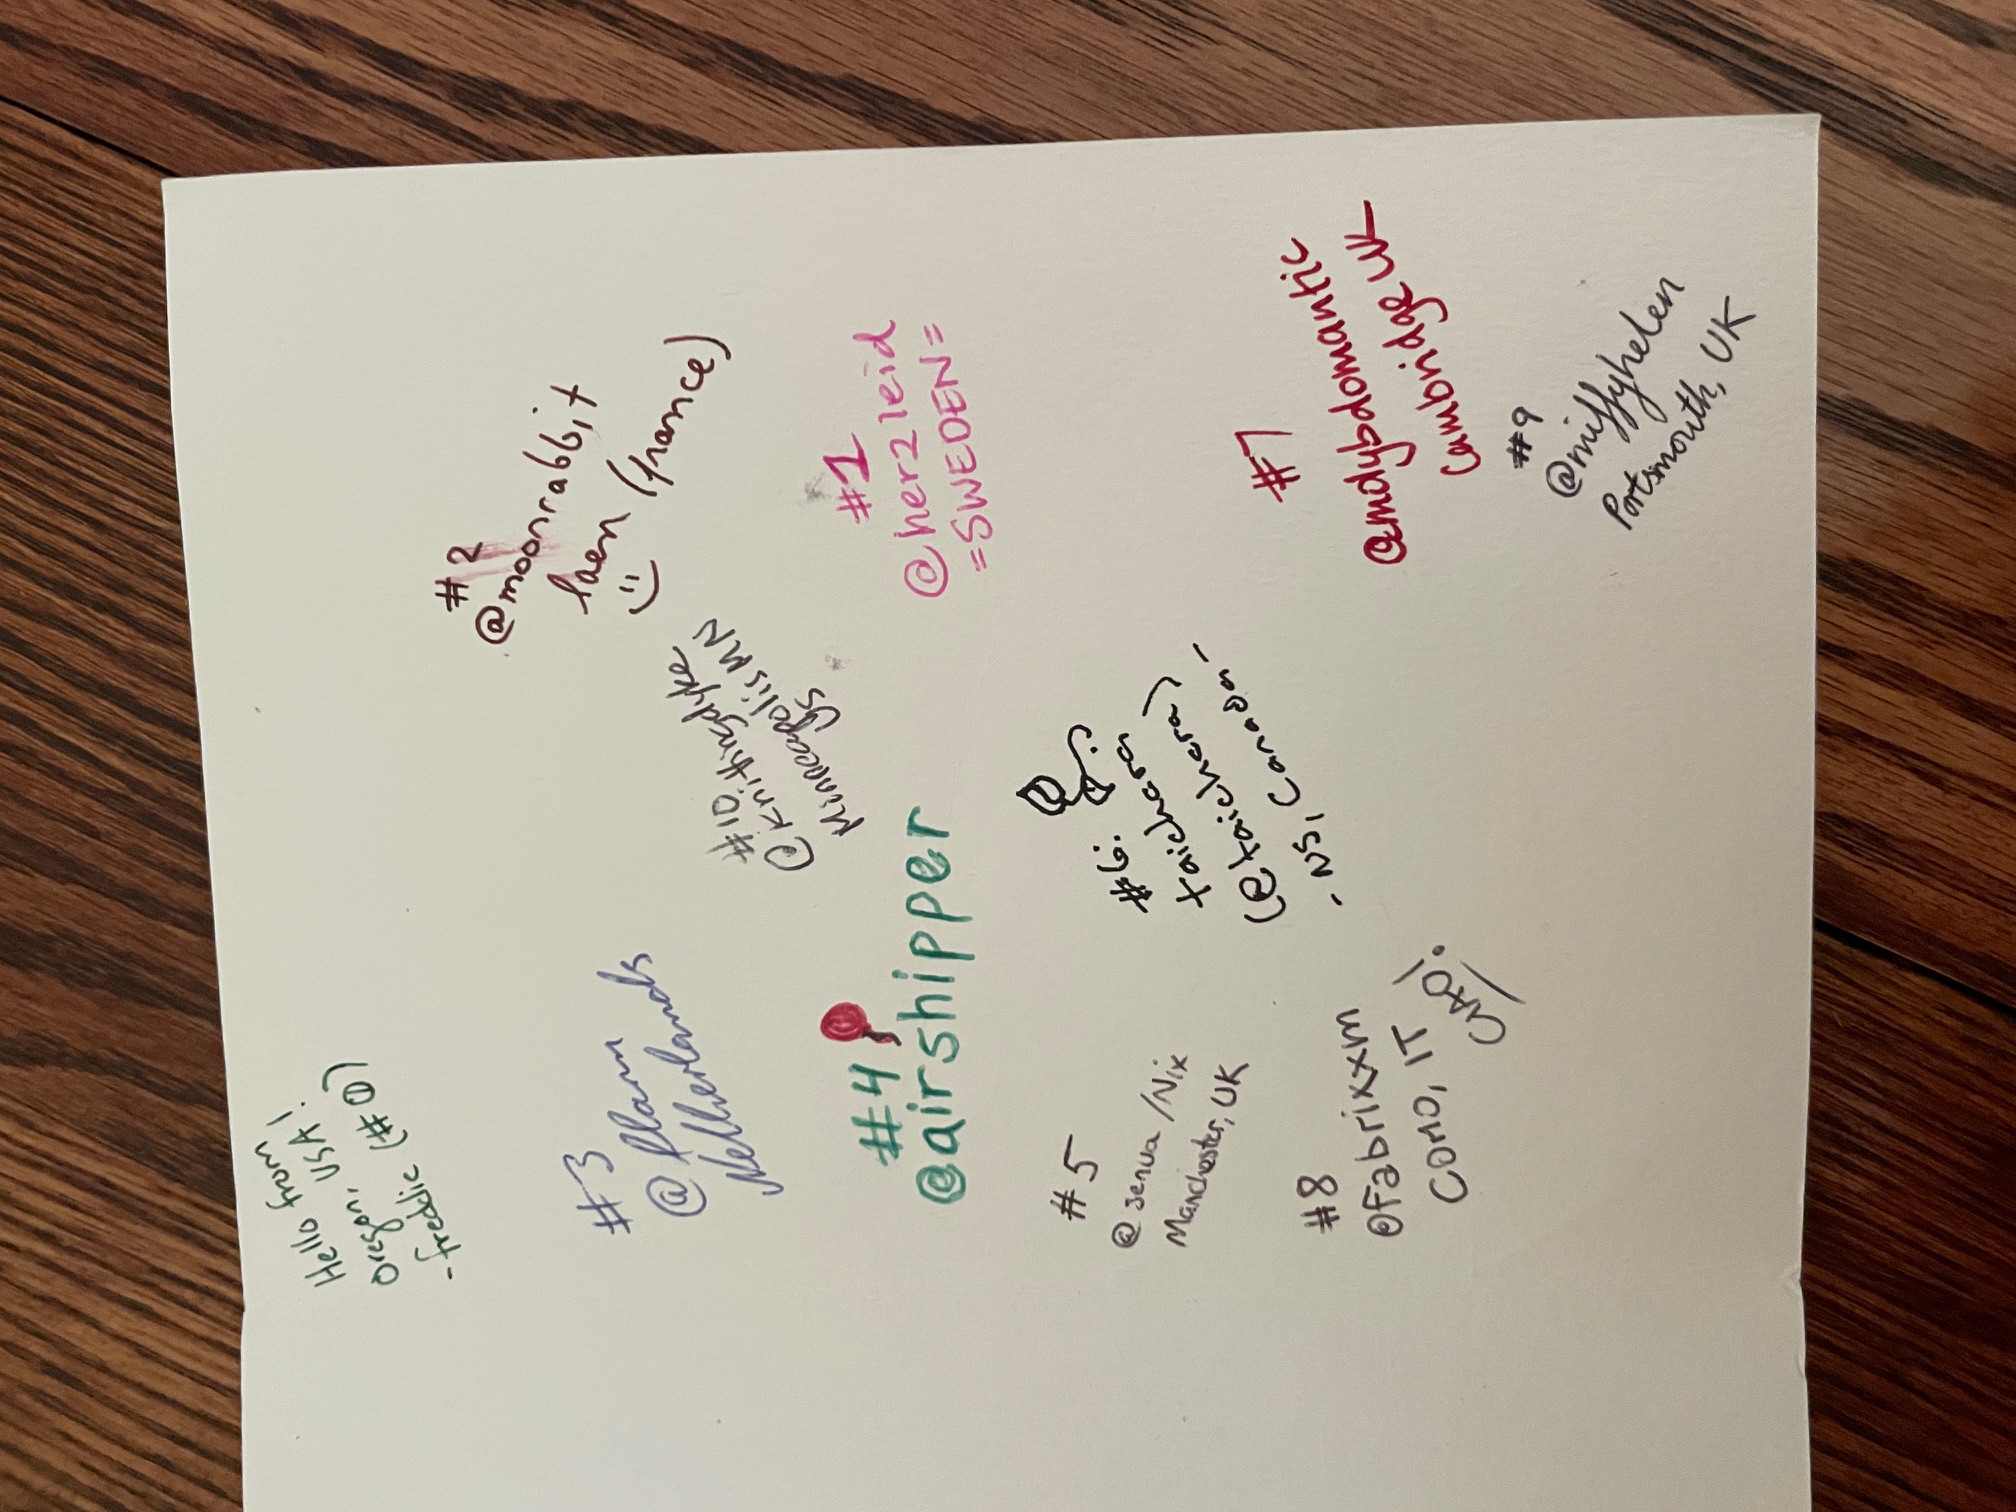 Hello from
Oregon, USA!
-freddic (#0)
#2
@moonrabbit
(france)
:)
#10
@knithagdyke
Minneapolis MN
US
#3
@flam
Netherlands
#1
@her2leid
=SWEDEN=
#4
@airshipper
#6:
taichara
(@taichara)
- NS, Canada -
#5
@senua/Nix
Manchester, UK
#7
Cambridge UK
#8
@Fabrixxm
COMO, IT
CIAO!
#9
@miffyhelen
Portsmouth, UK